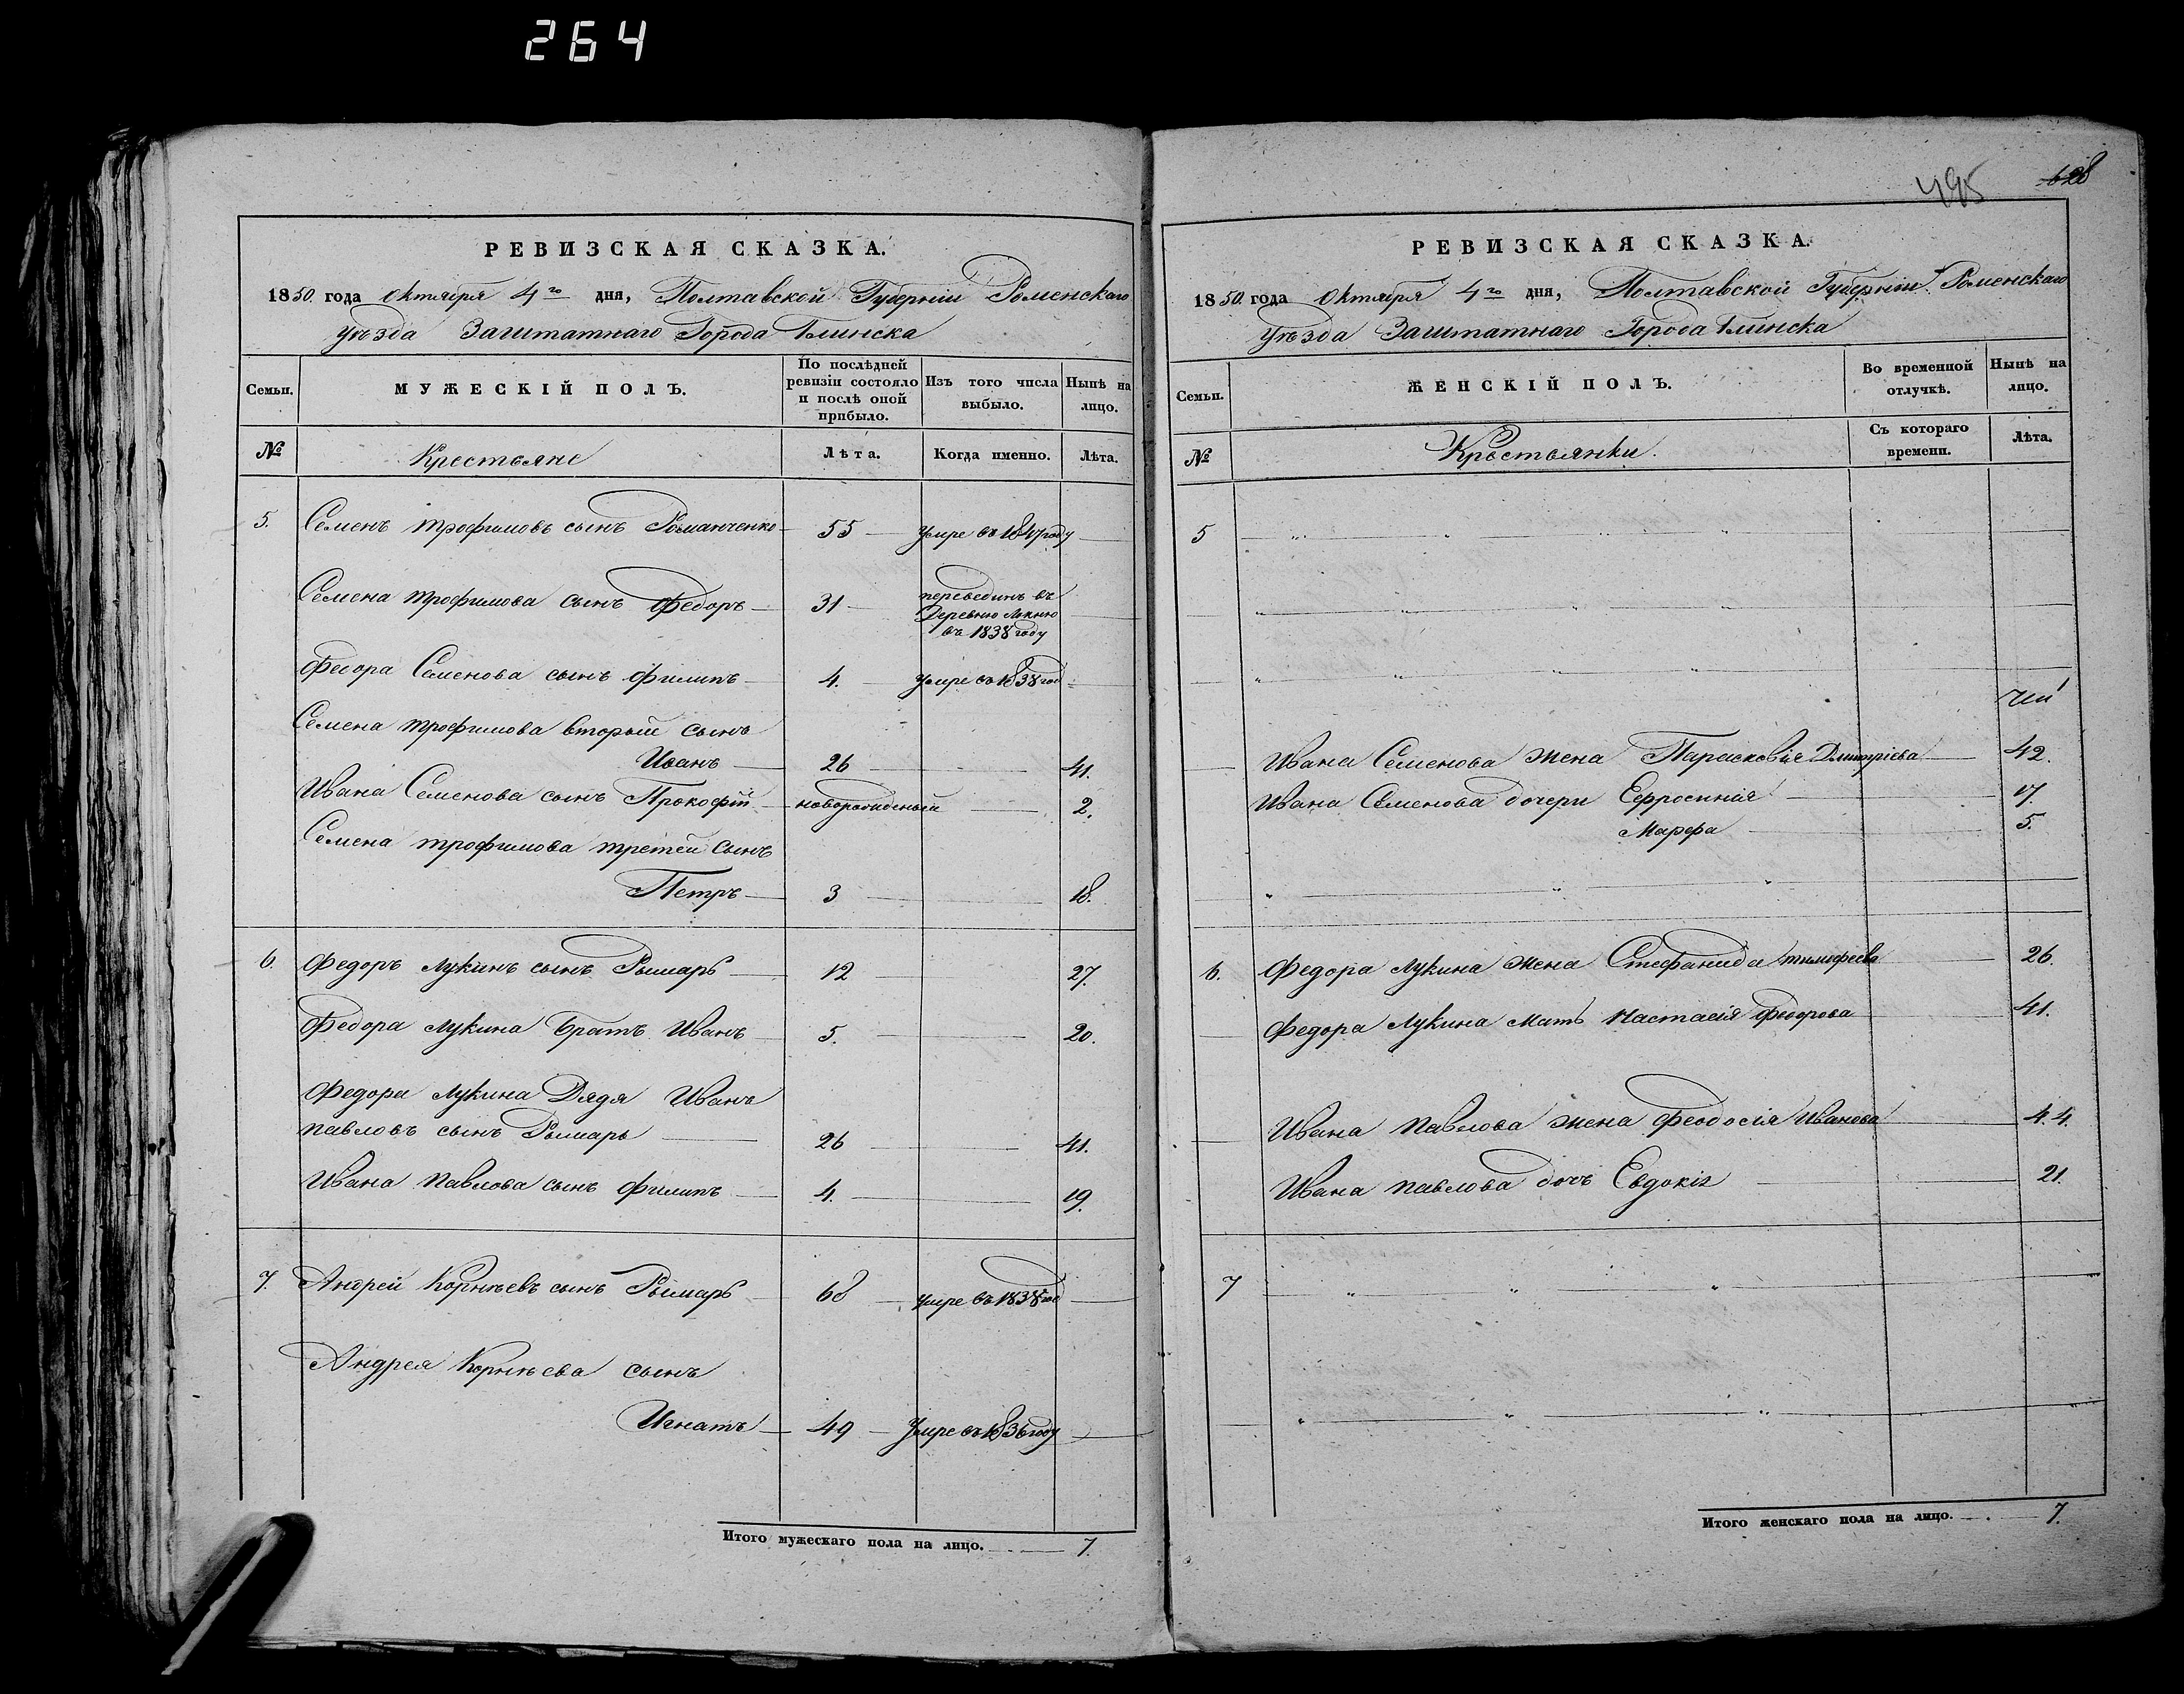 264
РЕВИЗСКАЯ СКАЗКА.
1850. года Октября 4го дня, Полтавской Губернiи Роменскаго
Уѣзда Заштатнаго Города Глинска
Семьи.
МУЖЕСКIЙ ПОЛЪ.
По послѣдней
ревизiи состояло
и послѣ оной
прибыло.
Изъ того числа
выбыло.
Нынѣ на
лицо.
№
Крестьяне
Лѣта.
Когда именно.
Лѣта.
5. Семенъ трофимовъ сынъ Романченко 55 Умре въ 1847 году
Семена трофимова сынъ Федоръ 31 переведенъ въ
Деревню
въ 1838 году
Федора Семенова сынъ Филипъ 4. Умре въ 1838 год
Семена трофимова вторый сынъ
Иванъ 26 41.
Ивана Семенова сынъ Прокофiй новорожденый 2.
Семена трофимова третей сынъ
Петръ 3 18.
6. Федоръ Лукинъ сынъ Рымарь 12 27.
Федора Лукина братъ Иванъ 5. 20.
Федора Лукина Дядя Иванъ
павловъ сынъ Рымарь 26 41.
Ивана Павлова сынъ Филипъ 4. 19.
7. Андрей Корнѣевъ сынъ Рымарь 68 умре въ 1838 год
Андрея Корнѣева сынъ
Игнатъ 49 Умре въ 1836 году
Итого мужескаго пола на лицо. 7.
495 628
РЕВИЗСКАЯ СКАЗКА.
1850. года Октября 4го дня, Полтавской Губернiи Роменскаго
Уѣзда Заштатнаго Города Глинска
Семьи.
ЖЕНСКIЙ ПОЛЪ.
Во временной
отлучкѣ.
Нынѣ на
лицо.
№
Крестьянки.
Съ котораго
времени.
Лѣта.
5
Ивана Семенова жена Парасковiя Дмитрiева 42.
Ивана Семенова дочери Ефросинiя 17.
Марфа 5.
6. Федора Лукина жена Стефанида тимофеева 26.
Федора Лукина Мать Настасiя Федорова 41.
Ивана Павлова жена Феодосiя Иванова 44.
Ивана павлова дочь Евдокiя 21.
7
Итого женскаго пола на лицо. 7.